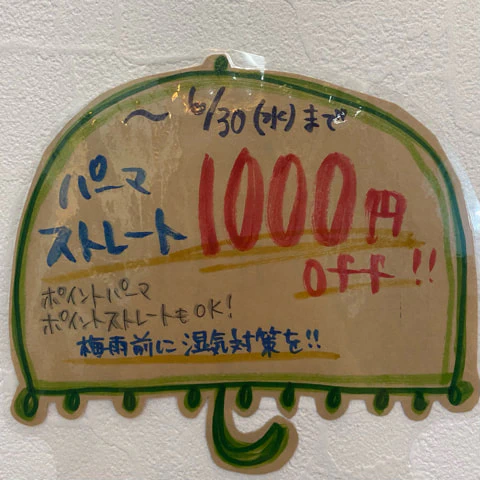 ～ 6/30(水)まで
パーマ
ストレート 1000円
off!!
ポイントパーマ
ポイントストレートもOK!
梅雨前に湿気対策を!!